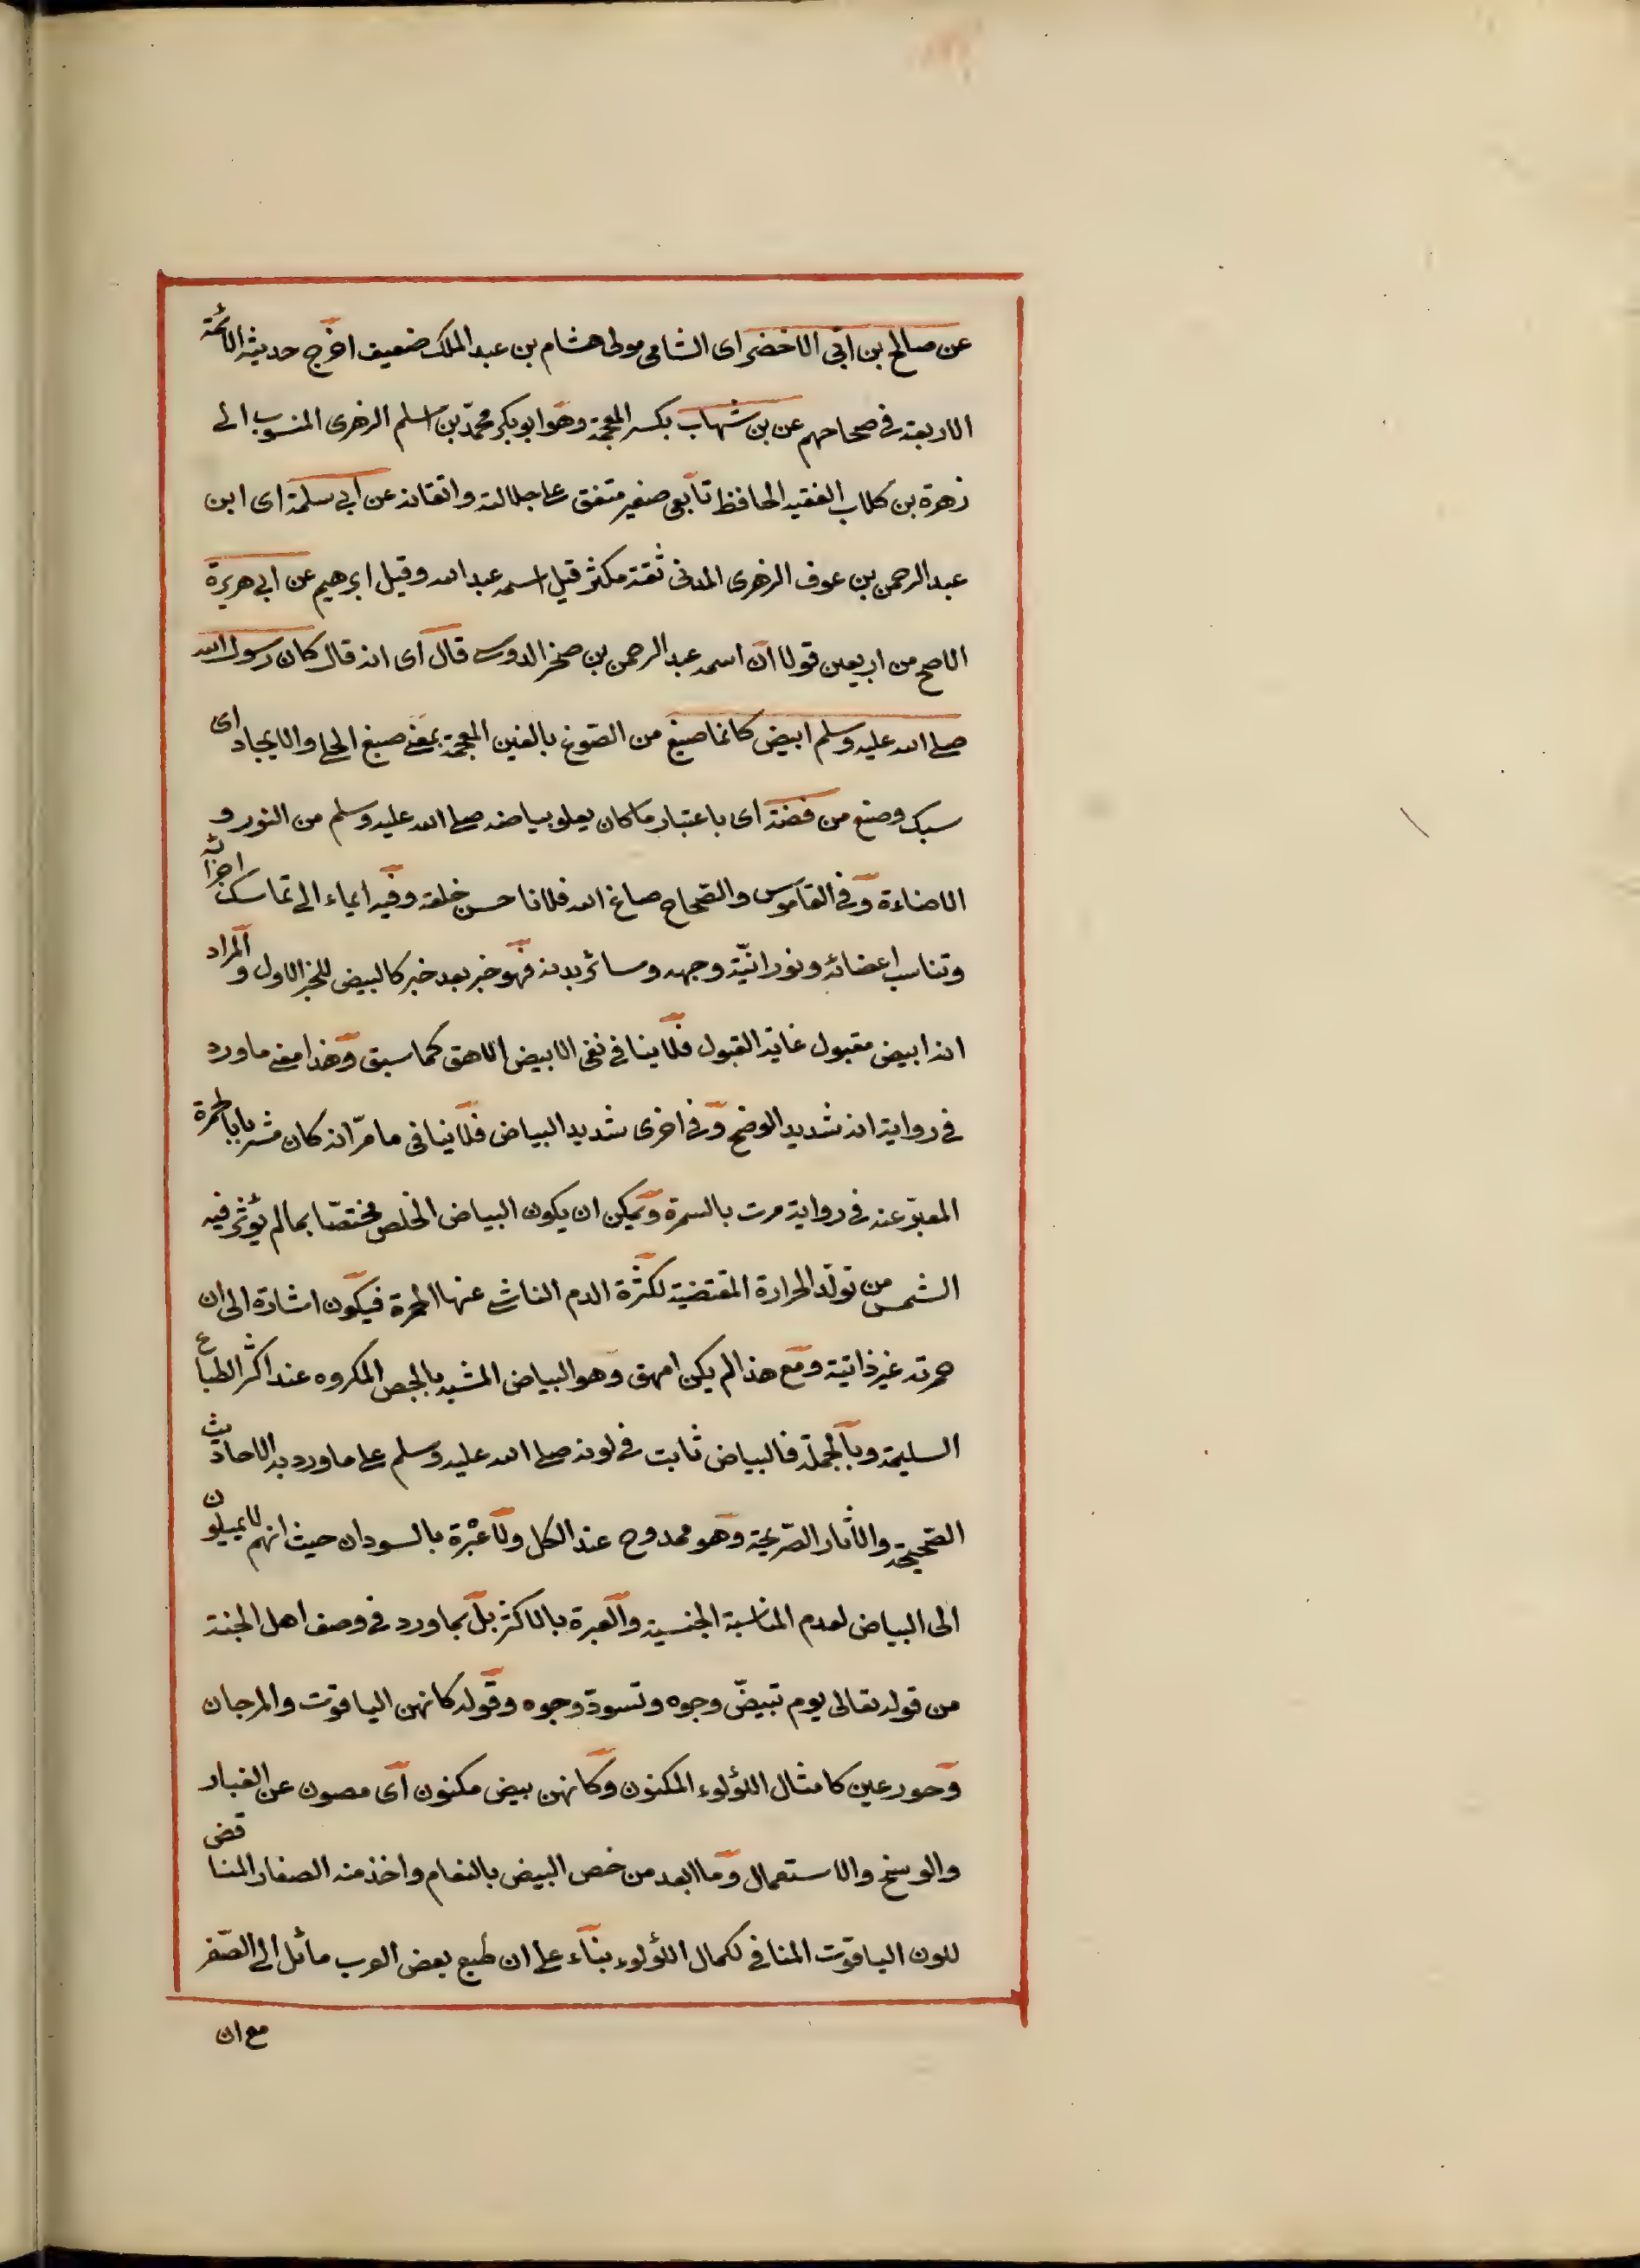 عن صالح بن ابى الاخضر اى الشامى مولى هشام بن عبد الملك ضعيف اخرج حديثه الائمة
الاربعة فى صحاحهم عن بن شهاب بكسر المعجمة وهو ابو بكر محمد بن اسلم الزهرى المنسوب الى
زهرة بن كلاب الفقيه الحافظ تابعى صغير متفق على جلالته واتقانه عن ابى سلمة اى ابن
عبد الرحمن بن عوف الزهرى المدنى ثقة مكثر قيل اسمه عبد الله وقيل ابرهيم عن ابى هريرة
الاصح من اربعين قولا ان اسمه عبد الرحمن بن صخر الدوسى قال اى انه قال كان رسول الله
صلى الله عليه وسلم ابيض كانما صيغ من الصّوغ بالغين المعجمة بمعنى صيغ الحلى والايجاد اى
سبك وصنع من فضة اى باعتبار ما كان يعلو بياضه صلى الله عليه وسلم من النور و
الاضاءة وفى القاموس والصّحاح صاغ الله فلانا حسن خلقه وفيه ايماء الى تماسك اجزائه
وتناسب اعضائه ونورانيّة وجهه وسائر بدنه فهو خبر بعد خبر كالبيض للخبر الاول والمراد
انه ابيض مقبول غاية القبول فلا ينافى نفى الابيض الامهق كما سبق وهذا معنى ما ورد
فى رواية انه شديد الوضح وفى اخرى شديد البياض فلا ينافى ما مرّ انه كان مشربا بالحمرة
المعبّر عنه فى رواية مرت بالسمرة ويمكن ان يكون البياض الخلص مختصّا بما لم يؤثر فيه
الشمس من تولّد الحرارة المقتضية لكثرة الدم الناشى عنها الحمرة فيكون اشارة الى ان
حمرته غير ذاتية ومع هذا لم يكن امهق وهو البياض المشبه بالجص المكروه عند اكثر الطباع
السليمة وبالجملة فالبياض ثابت فى لونه صلى الله عليه وسلم على ما ورد به الاحاديث
الصّحيحة والأثار الصّريحة وهو ممدوح عند الكل ولا عبْرة بالسودان حيث انهم لا يميلون
الى البياض لعدم المناسبة الجنسية والعبرة بالاكثر بل بما ورد فى وصف اهل الجنة
من قوله تعالى يوم تبيضّ وجوه وتسودّ وجوه وقوله كانهن الياقوت والمرجان
وحور عين كامثال اللؤلوء المكنون وكانهن بيض مكنون اى مصون عن الغبار
والوسخ والاستعمال وما ابعد من خص البيض بالنعام واخذ منه الصفار المناقض
للون الياقوت المنافى لكمال اللؤلوء بناء على ان طبع بعض العرب مائل الى الصّفر
مع ان